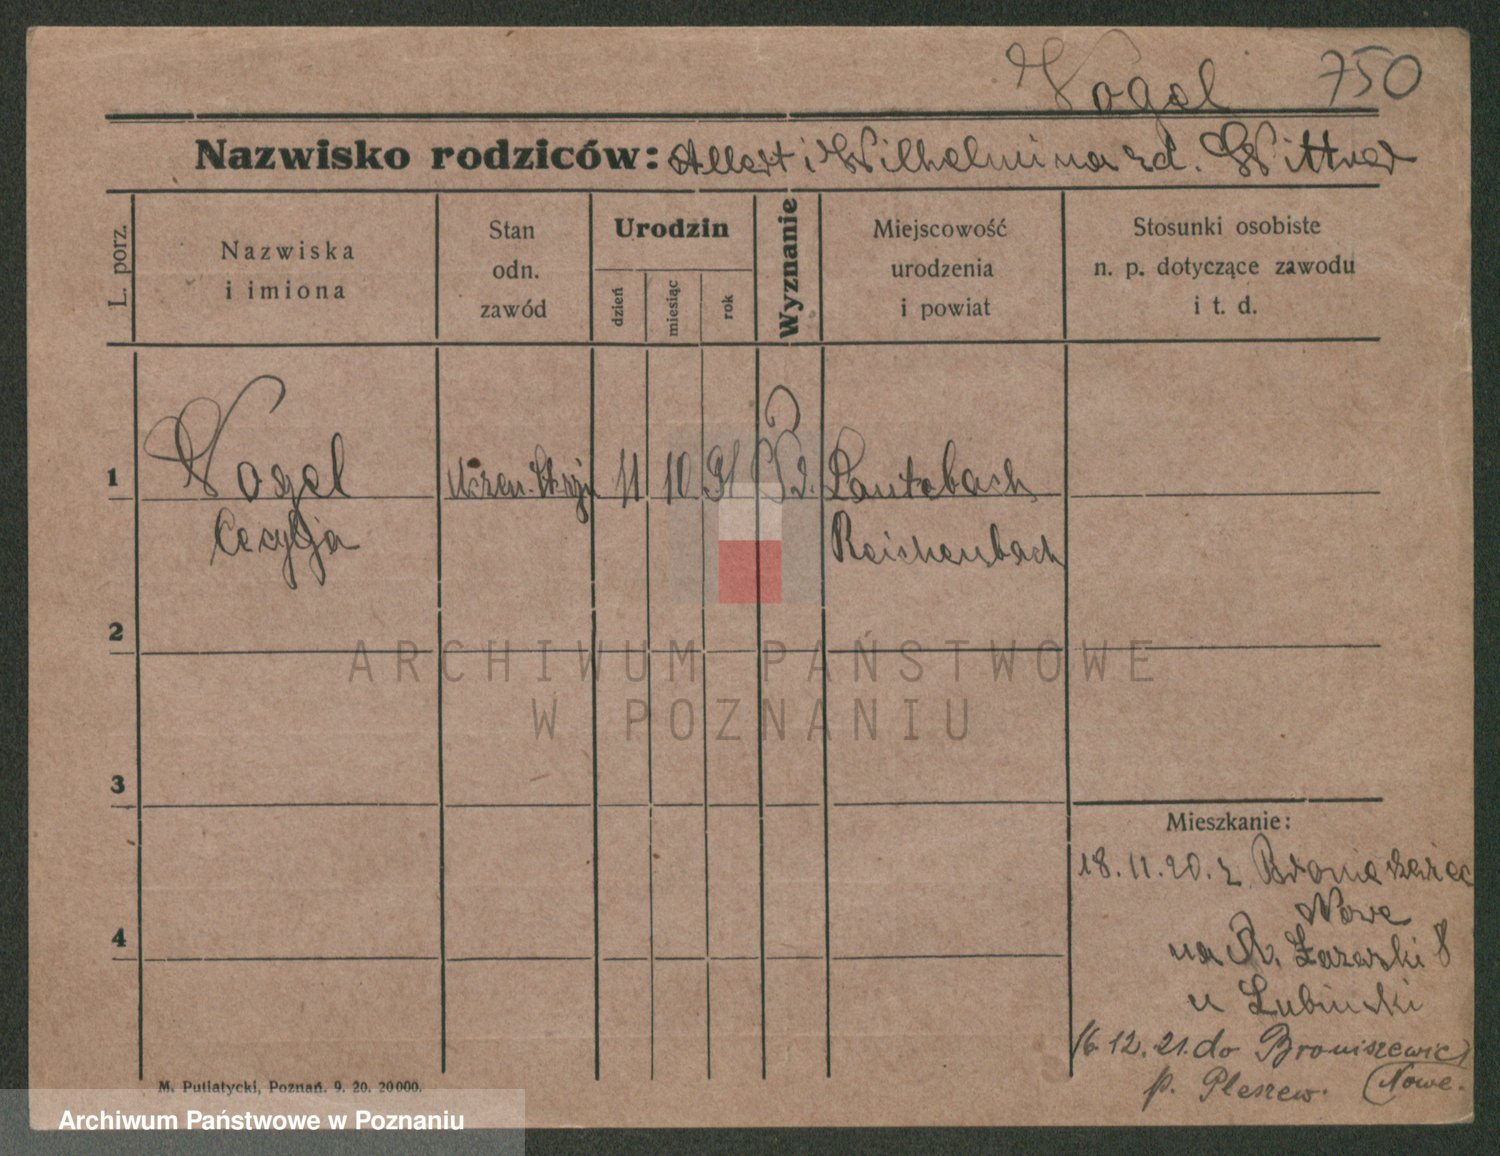 Vogel 750
Nazwisko rodziców: Albert i Wilhelmina zd. Wittner
L. porz.
Nazwiska
i imiona
Stan
odn.
zawód
Urodzin
dzień
miesiąc
rok
Wyznanie
Miejscowość
urodzenia
i powiat
Stosunki osobiste
n. p. dotyczące zawodu
i t. d.
1 Vogel 11 10 91
Cecylja Reichenbach
2
3
4
Mieszkanie:
18.11.20. z Broniszewice
Nowe
na R. Łazarski 8
u Lubinski
16.12.21. do Broniszewic
p. Pleszew. (Nowe.
M. Putiatycki, Poznań. 9. 20. 20000.
ARCHIWUM PAŃSTWOWE
W POZNANIU
Archiwum Państwowe w Poznaniu